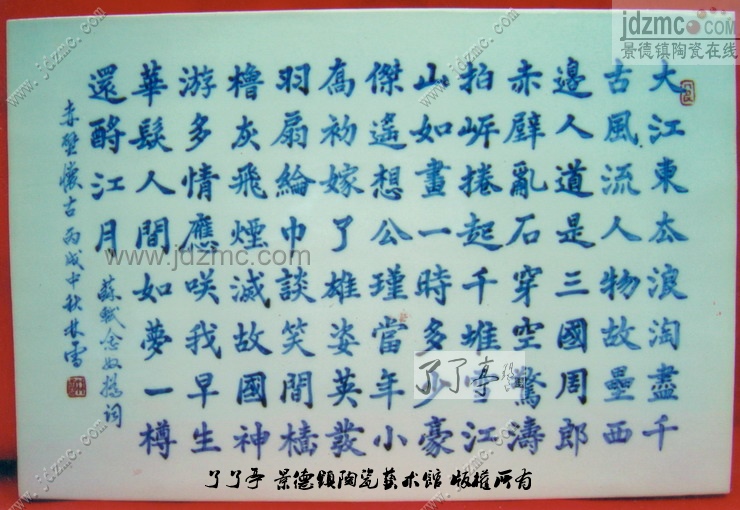 大江東厺浪淘盡千
古風流人物故壘西
邊人道是三國周郎
赤壁亂石穿空驚濤
拍岍捲起千堆雪江
山如畫一時多少豪
傑遙想公瑾當年小
喬初嫁了雄姿英發
羽扇綸巾談笑間檣
櫓灰飛煙滅故國神
游多情應咲我早生
華髮人間如夢一樽
還酹江月
蘇軾念奴嬌詞
赤壁懷古丙戌中秋林雲
jdzmc.COM
景德镇陶瓷在线
www.jdzmc.com
了了亭
了了亭 景德镇陶瓷藝术馆 版權所有